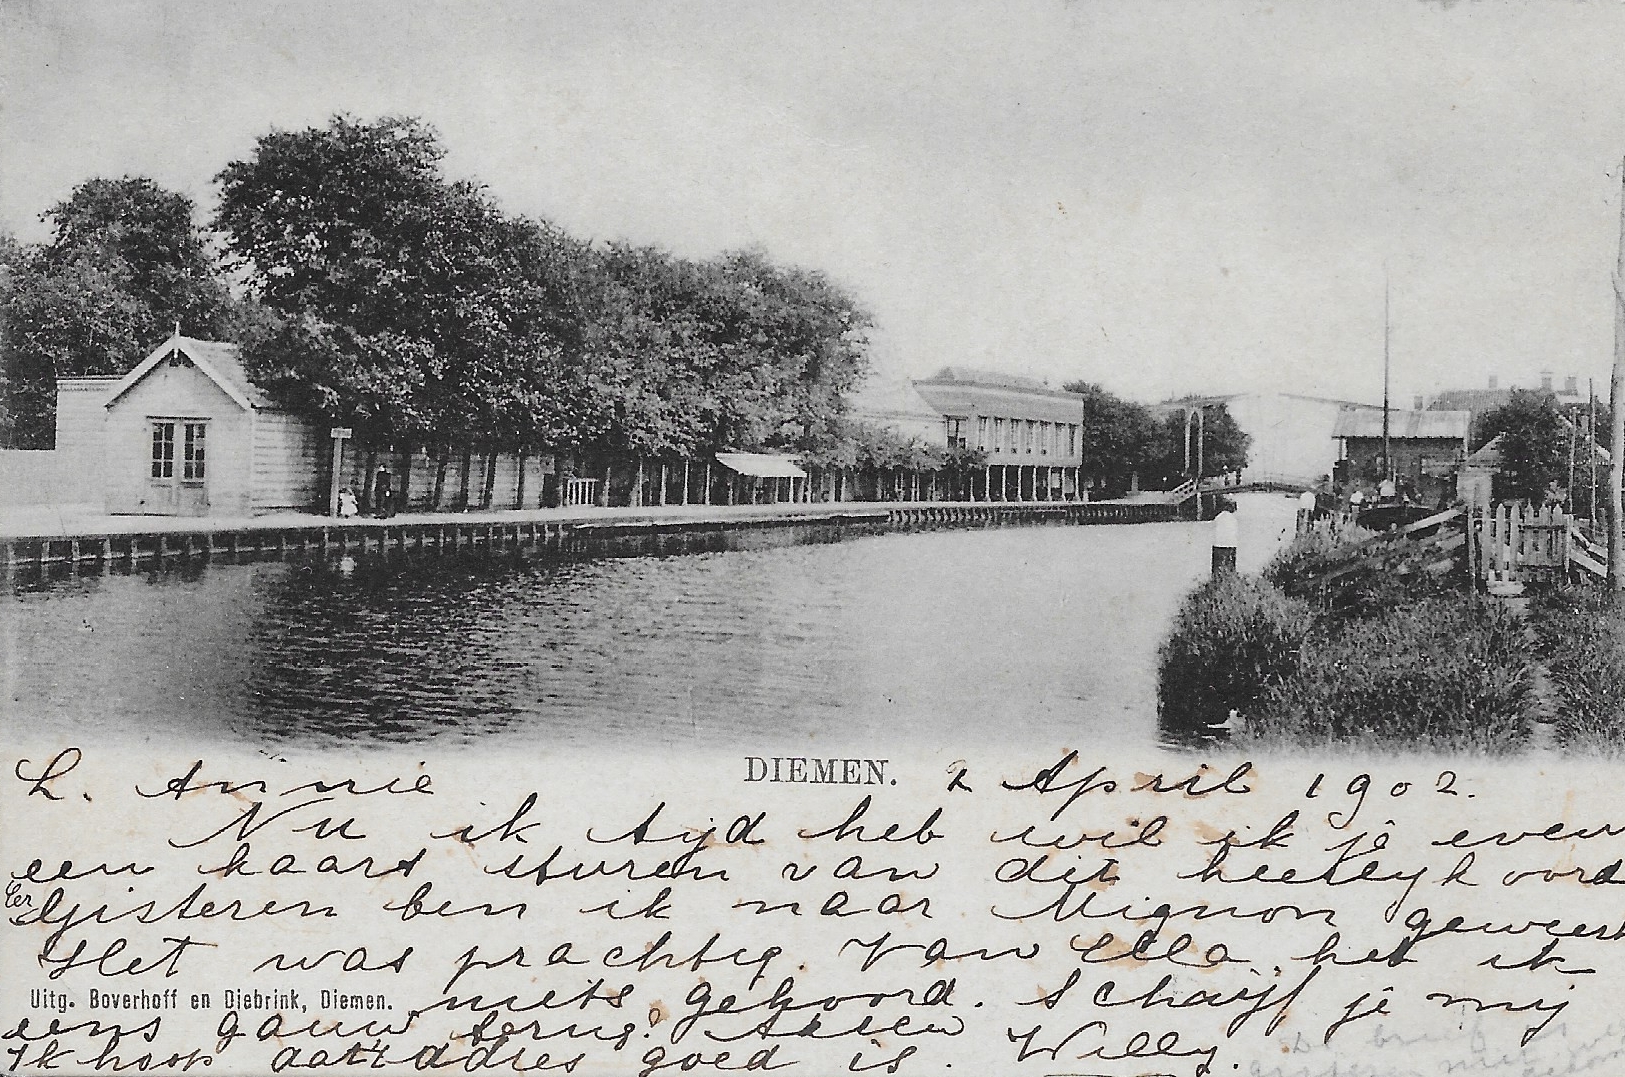 DIEMEN. 2 April 1902.
L. Annie
Nu ik tijd heb wil ik je even
een kaart sturen van dit heerlijk oord
Eer Gisteren ben ik naar Mignon geweest
Het was prachtig. Van Ella heb ik
Uitg. Boverhoff en Djebrink, Diemen.
niets gehoord. Schrijf je mij
eens gauw terug?
Ik hoop dat 't adres goed is. Willy.